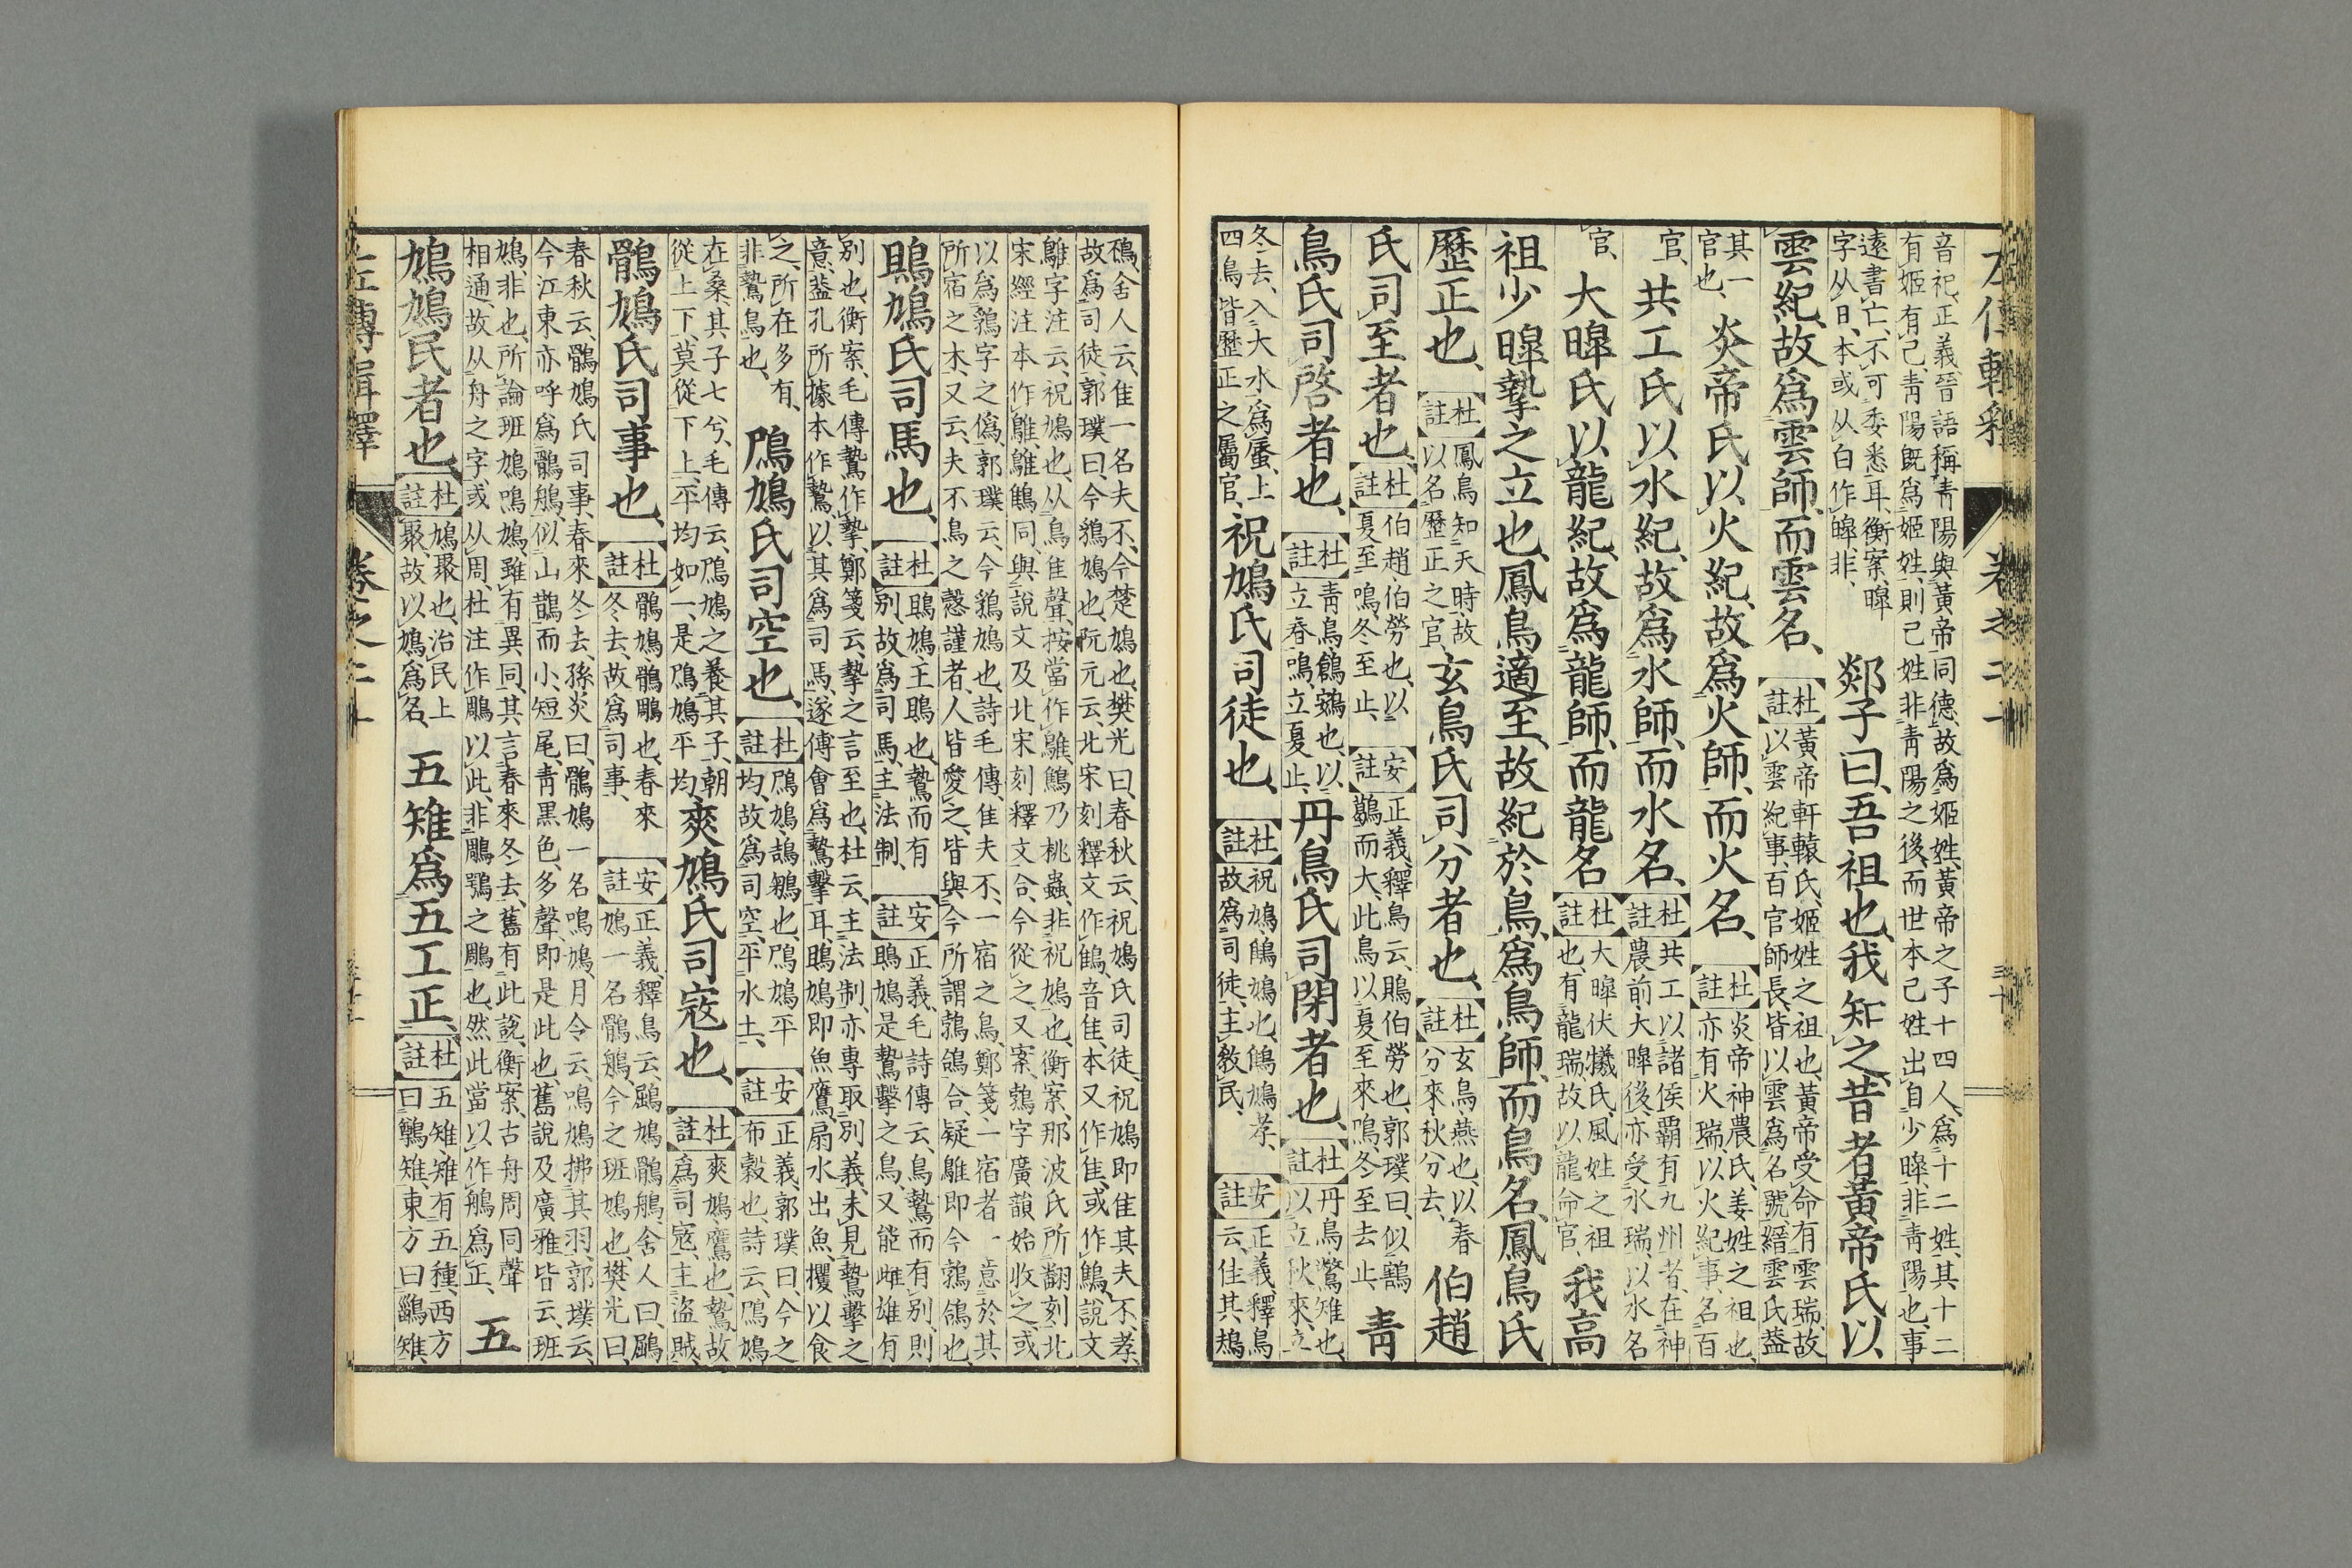 左傳輯釋 卷之二十
音祀、正義、晉語稱青陽與黃帝同德、故爲姬姓、黃帝之子十四人、爲十二姓、其十二
有姬有己、青陽既爲姬姓、則己姓非青陽之後、而世本己姓出自少皥、非青陽也、事
遠書亡、不可委悉耳、衡案、皥
字从日、本或从白作皞非、
郯子曰、吾祖也、我知之、昔者黃帝氏以
雲紀、故爲雲師、而雲名、
杜註 黃帝軒轅氏、姬姓之祖也、黃帝受命有雲瑞、故
以雲紀事、百官師長、皆以雲爲名號、縉雲氏蓋
其一
官也、
炎帝氏以火紀、故爲火師、而火名、
杜註 炎帝神農氏、姜姓之祖也、
亦有火瑞、以火紀事、名百
官、
共工氏以水紀、故爲水師、而水名、
杜註 共工以諸侯霸有九州者、在神
農前大皥後、亦受水瑞、以水名
官、
大皥氏以龍紀、故爲龍師、而龍名
杜註 大皥伏犧氏、風姓之祖
也、有龍瑞、故以龍命官、
我高
祖少皥摯之立也、鳳鳥適至、故紀於鳥、爲鳥師、而鳥名、鳳鳥氏
歷正也、
杜註 鳳鳥知天時、故
以名歷正之官、
玄鳥氏司分者也、
杜註 玄鳥、燕也、以春
分來、秋分去、
伯趙
氏司至者也、
杜註 伯趙、伯勞也、以
夏至鳴、冬至止、
安註 正義、釋鳥云、鵙伯勞也、郭璞曰、似鶷
鶡而大、此鳥以夏至來鳴、冬至去止、
青
鳥氏司啓者也、
杜註 青鳥、鶬鴳也、以
立春鳴、立夏止、
丹鳥氏司閉者也、
杜註 丹鳥、鷩雉也、
以立秋來、立
冬去、入大水爲蜃、上
四鳥皆歷正之屬官、
祝鳩氏司徒也、
杜註 祝鳩、鷦鳩也、鷦鳩孝、
故爲司徒、主敎民、
安註 正義、釋鳥
云、隹其鳺
鴀、舍人云、隹一名夫不、今楚鳩也、樊光曰、春秋云、祝鳩氏司徒、祝鳩即隹其夫不、孝、
故爲司徒、郭璞曰、今鶉鳩也、阮元云、北宋刻釋文作鷦、音隹、本又作隹、或作鵻、說文
鵻字注云、祝鳩也、从鳥隹聲、按當作鵻、鷦乃桃蟲、非祝鳩也、衡案、那波氏所翻刻北
宋經注本作鵻、鵻鷦同、與說文及北宋刻釋文合、今從之、又案、鶉字廣韻始收之、或
以爲鶉字之僞、郭璞云、今鶉鳩也、詩毛傳、隹夫不、一宿之鳥、鄭箋、一宿者、一意於其
所宿之木、又云、夫不鳥之慤謹者、人皆愛之、皆與今所謂鶉鴿合、疑鵻即今鶉鴿也、
鵙鳩氏司馬也、
杜註 鵙鳩、王鵙也、鷙而有
別、故爲司馬、主法制、
安註 正義、毛詩傳云、鳥鷙而有別、則
鵙鳩是鷙擊之鳥、又能雌雄有
別也、衡案、毛傳鷙作摯、鄭箋云、摯之言至也、杜云、主法制、亦專取別義、未見鷙擊之
意、蓋孔所據本作鷙、以其爲司馬、遂傅會爲鷙擊耳、鵙鳩即魚鷹、扇水出魚、攫以食
之、所在多有、
非鷙鳥也、
鳲鳩氏司空也、
杜註 鳲鳩、鴶鵴也、鳲鳩平
均、故爲司空、平水土、
安註 正義、郭璞曰、今之
布穀也、詩云、鳲鳩
在桑、其子七兮、毛傳云、鳲鳩之養其子、朝
從上下、莫從下上、平均如一、是鳲鳩平均、
爽鳩氏司寇也、
杜註 爽鳩、鷹也、鷙、故
爲司寇、主盜賊、
鶻鳩氏司事也、
杜註 鶻鳩、鶻鵰也、春來
冬去、故爲司事、
安註 正義、釋鳥云、鶌鳩鶻鵃、舍人曰、鶌
鳩一名鶻鵃、今之班鳩也、樊光曰、
春秋云、鶻鳩氏司事、春來冬去、孫炎曰、鶻鳩一名鳴鳩、月令云、鳴鳩拂其羽、郭璞云、
今江東亦呼爲鶻鵃、似山鵲而小、短尾、青黑色、多聲、即是此也、舊說及廣雅皆云、班
鳩非也、所論班鳩鳴鳩、雖有異同、其言春來冬去、舊有此說、衡案、古舟周同聲
相通、故从舟之字、或从周、杜注作鵰以此、非鵰鶚之鵰也、然此當以作鵃爲正、
五
鳩鳩民者也、
杜註 鳩、聚也、治民上
聚、故以鳩爲名、
五雉爲五工正、
杜註 五雉、雉有五種、西方
曰鷷雉、東方曰鶅雉、
左傳輯釋 卷之二十